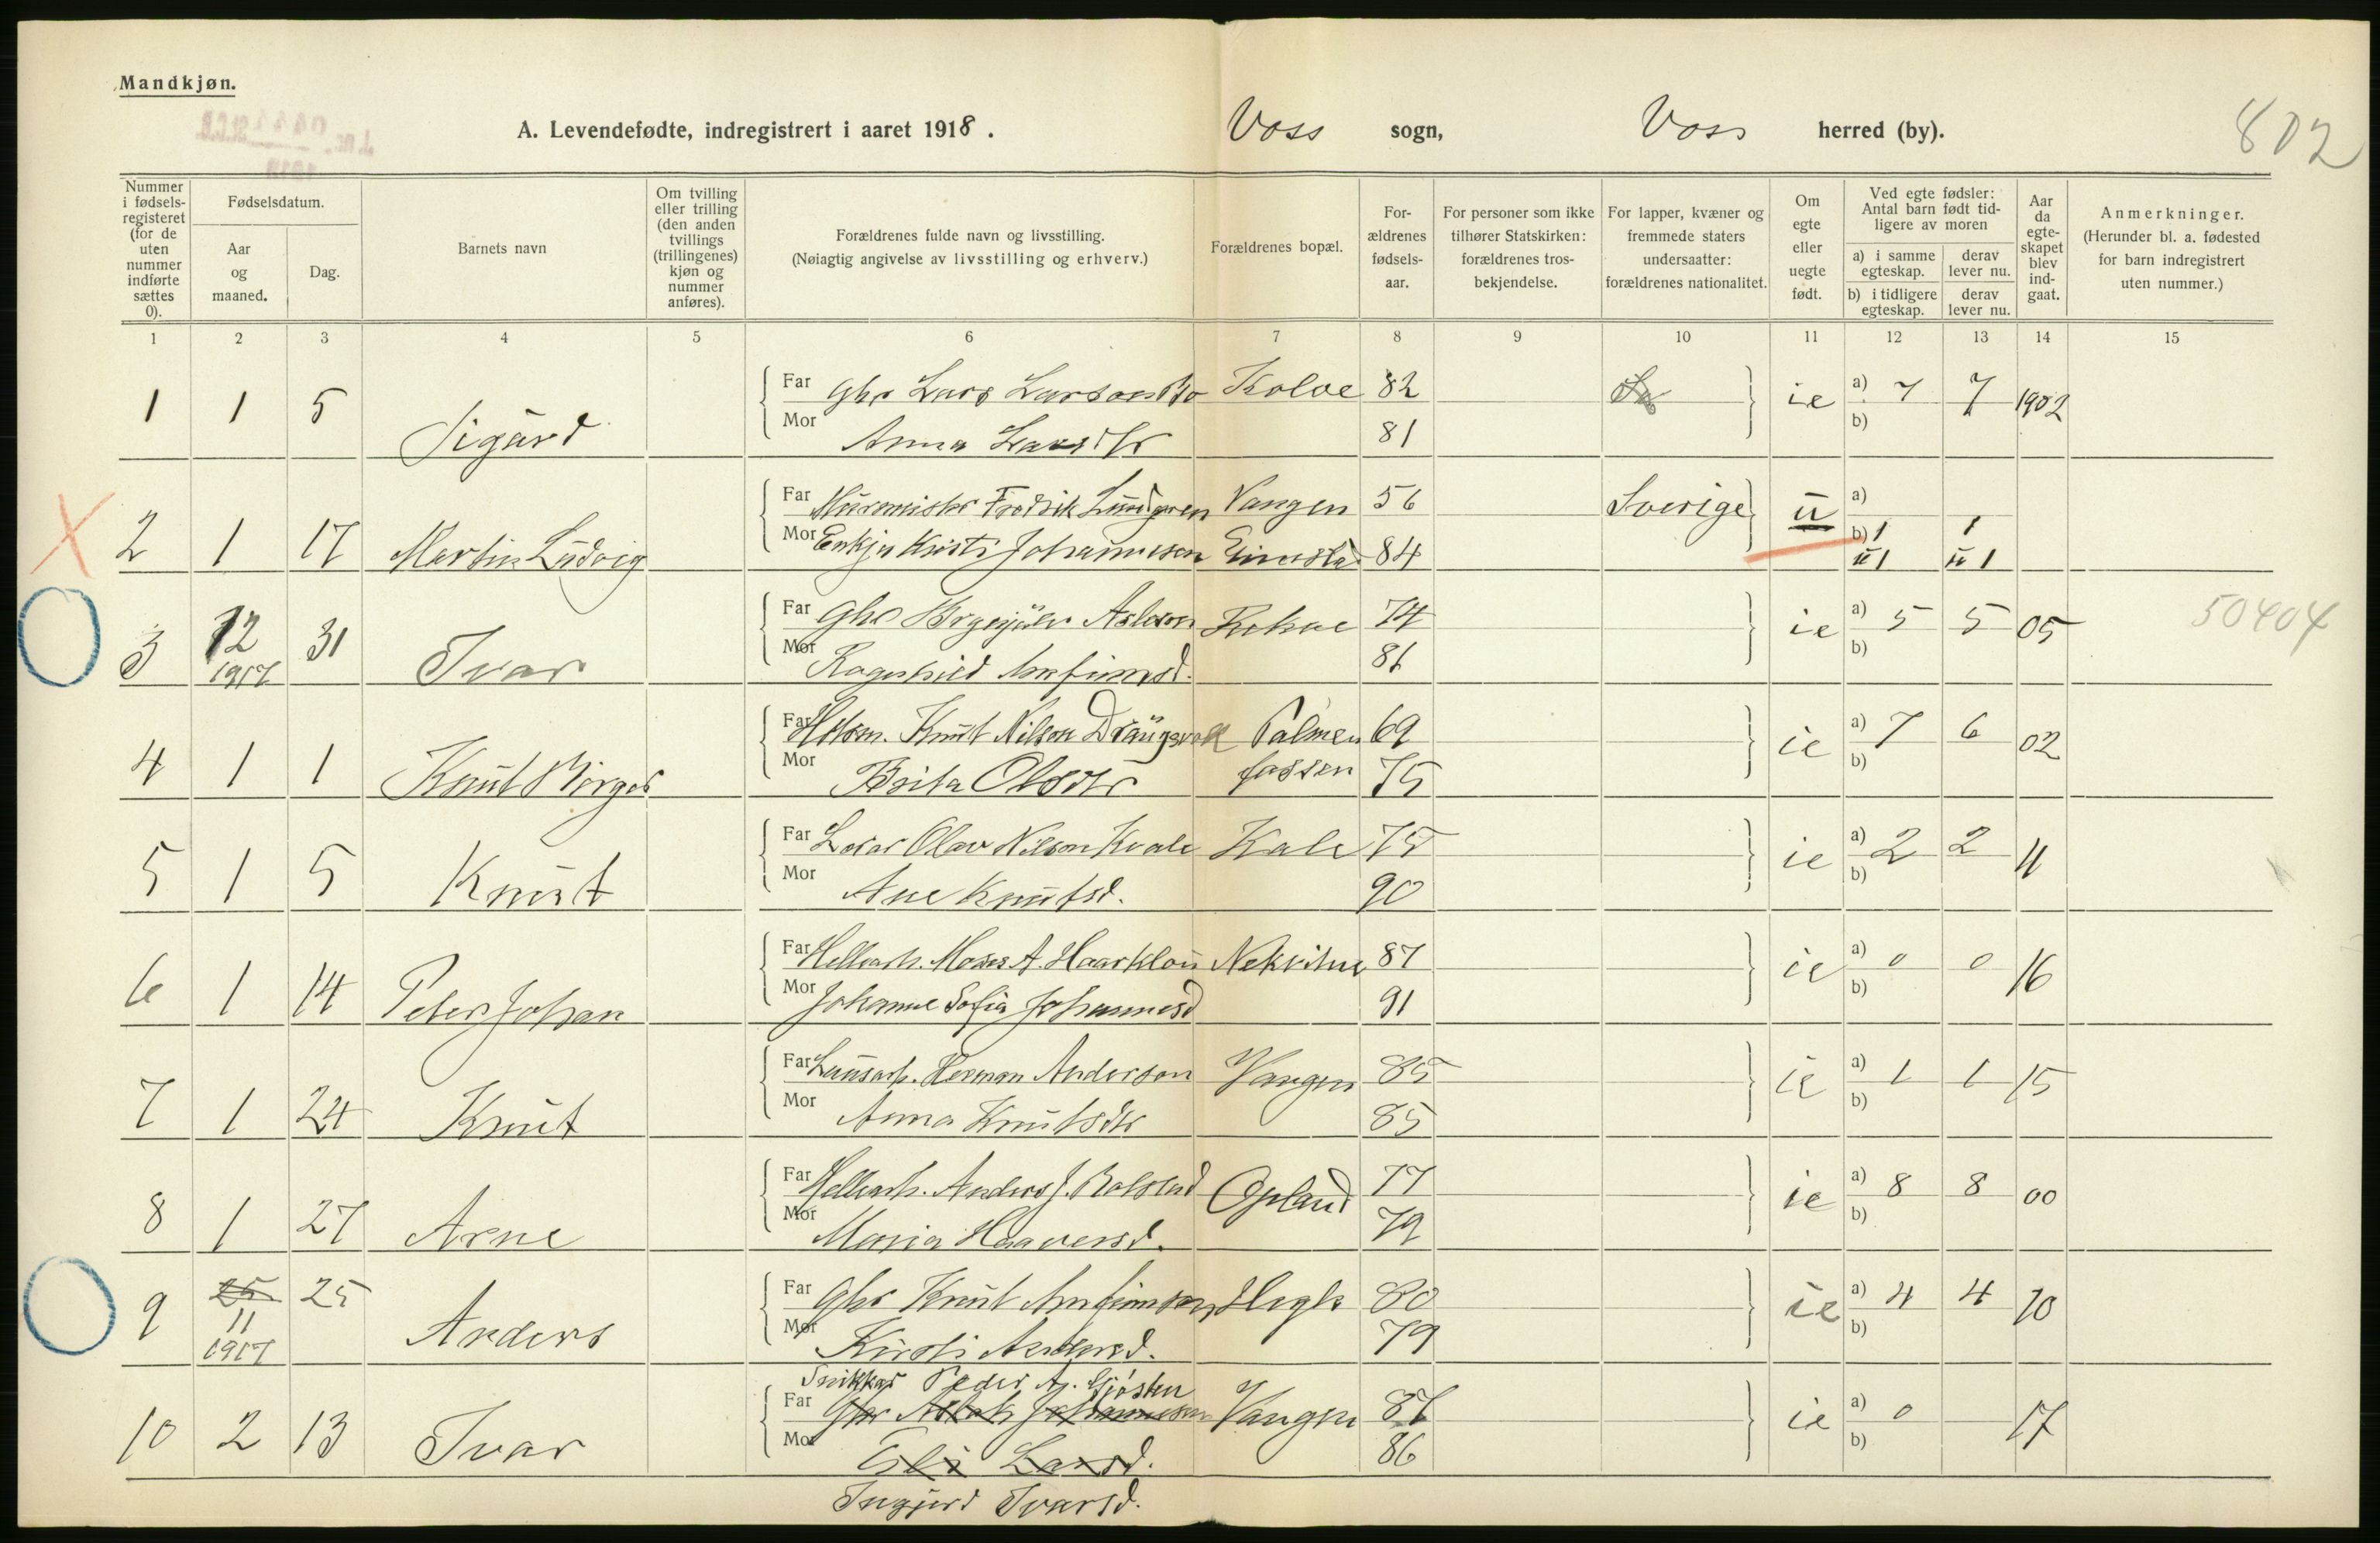 Mandkjøn.
A. Levendefødte, indregistrert i aaret 1918. Voss sogn, Voss herred (by). 802
Nummer i fødselsregisteret (for de uten nummer indførte sættes 0).
Fødselsdatum.
Aar og maaned.
Dag.
Barnets navn
Om tvilling eller trilling (den anden tvillings (trillingenes) kjøn og nummer anføres).
Forældrenes fulde navn og livsstilling. (Nøiagtig angivelse av livsstilling og erhverv.)
Forældrenes bopæl.
Forældrenes fødselsaar.
For personer som ikke tilhører Statskirken: forældrenes trosbekjendelse.
For lapper, kvæner og fremmede staters undersaatter: forældrenes nationalitet.
Om egte eller uegte født.
Ved egte fødsler: Antal barn født tidligere av moren
a) i samme egteskap. derav lever nu.
b) i tidligere egteskap. derav lever nu.
Aar da egteskapet blev indgaat.
Anmerkninger. (Herunder bl. a. fødested for barn indregistrert uten nummer.)
1 2 3 4 5 6 7 8 9 10 11 12 13 14 15
1 1 5 Sigurd Far Gbr Lars Larson Bø 82 ie a) 7 7 1902
Mor Anna Larsdtr 81 b)
2 1 17 Martin Ludvig Far Murmister Fredrik Lundgren Vangen 56 Sverige u a)
Mor Enkja Kristi Johannesen 84 b) 1 1
u 1 u 1
3 12 1917 31 Ivar Far Gbr Brynjulv Asleson 74 ie a) 5 5 05 50404
Mor Ragnhild Arnfinnsd. 81 b)
4 1 1 Knut Birger Far Knut Nilson Draugsvoll Palmafossen 69 ie a) 7 6 02
Mor Brita Olsdtr 75 b)
5 1 5 Knut Far Lærar Olav Nilson Kvale Kvale 75 ie a) 2 2 11
Mor Ane Knutsd. 90 b)
6 1 14 Peter Johan Far Hellearb. Moses A. Haarklou Nekvitne 87 ie a) 0 0 16
Mor Johanne Sofia Johannesd 91 b)
7 1 24 Knut Far Lausarb. Herman Anderson Vangen 85 ie a) 1 1 15
Mor Anna Knutsdtr 85 b)
8 1 27 Arne Far Hellearb. Anders J. Rolstad Opland 77 ie a) 8 8 00
Mor Maria Haaversd. 79 b)
9 25 11 1917 25 Anders Far Gbr Knut Arnfinnson Hegle 80 ie a) 4 4 10
Mor Kirsti Andersd. 79 b)
Snikkar Peder A. Gjøstein
10 2 13 Ivar Far Gbr Aslak Johannesen Vangen 87 ie a) 0 17
Mor Eli Larsd. 86 b)
Ingjerd Ivarsd.